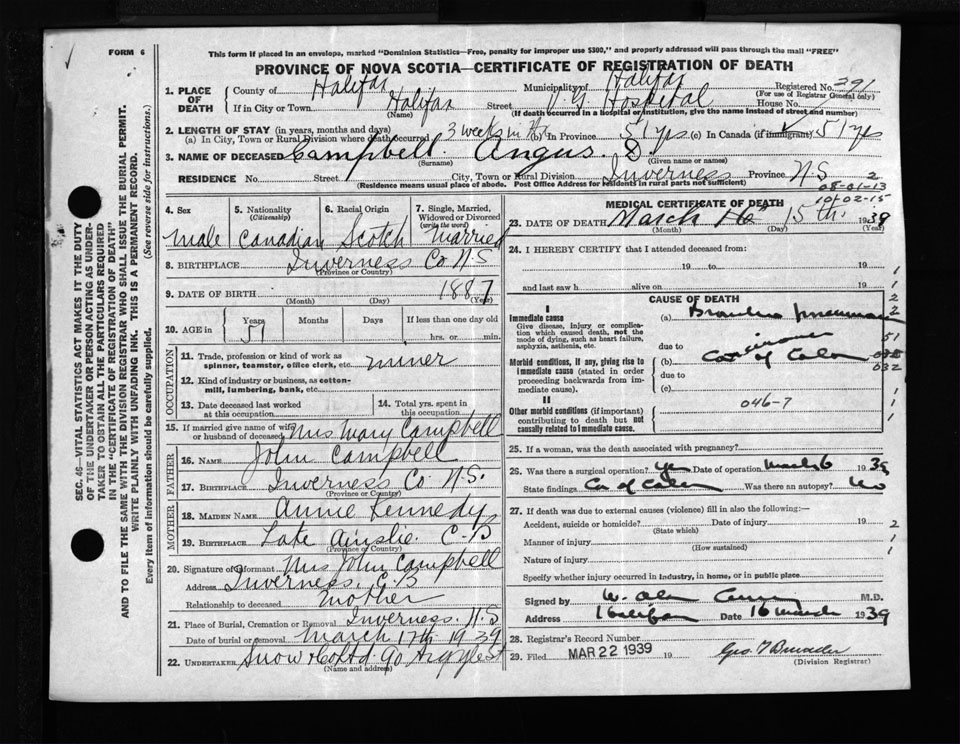 FORM 6
This form if placed in an envelope, marked "Dominion Statistics—Free, penalty for improper use $300," and properly addressed will pass through the mail "FREE"
PROVINCE OF NOVA SCOTIA—CERTIFICATE OF REGISTRATION OF DEATH
1. PLACE OF DEATH
County of Halifax Municipality of Halifax Registered No. 391
(For use of Registrar General only)
If in City or Town Halifax Street V. G. Hospital House No.
(Name) (If death occurred in a hospital or institution, give the name instead of street and number)
2. LENGTH OF STAY (in years, months and days)
(a) In City, Town or Rural Division where death occurred 3 weeks in In Province 51 yrs (c) In Canada (if immigrant) 51 yrs
3. NAME OF DECEASED Campbell. Angus. D.
(Surname) (Given name or names)
RESIDENCE No. Street City, Town or Rural Division Inverness Province N.S 2
(Residence means usual place of abode. Post Office Address for residents in rural parts not sufficient)
08-01-13
10-02-15
4. Sex
5. Nationality (Citizenship)
6. Racial Origin
7. Single, Married, Widowed or Divorced (write the word)
Male Canadian Scotch Married
8. BIRTHPLACE Inverness Co N.S
(Province or Country)
9. DATE OF BIRTH 1887
(Month) (Day) (Year)
10. AGE in Years Months Days If less than one day old
51 hrs. or min.
OCCUPATION
11. Trade, profession or kind of work as spinner, teamster, office clerk, etc. miner
12. Kind of industry or business, as cotton-mill, lumbering, bank, etc.
13. Date deceased last worked at this occupation
14. Total yrs. spent in this occupation
15. If married give name of wife or husband of deceased Mrs Mary Campbell
FATHER
16. NAME John Campbell
17. BIRTHPLACE Inverness Co. N.S.
(Province or Country)
MOTHER
18. MAIDEN NAME Annie Kennedy
19. BIRTHPLACE Lake Ainslie. C-B
(Province or Country)
20. Signature of informant Mrs John Campbell
Address Inverness, C.B
Relationship to deceased Mother
21. Place of Burial, Cremation or Removal Inverness. N.S
Date of burial or removal March 17th 1939
22. UNDERTAKER Snow & Co Ltd 90 Argyle St
(Name and address)
MEDICAL CERTIFICATE OF DEATH
23. DATE OF DEATH March 15th 1939
(Month) (Day) (Year)
24. I HEREBY CERTIFY that I attended deceased from:
19 to 19
and last saw h alive on 19
CAUSE OF DEATH
I
Immediate cause
Give disease, injury or complication which caused death, not the mode of dying, such as heart failure, asphyxia, asthenia, etc.
(a) Broncho pneumonia
due to
Morbid conditions, if any, giving rise to immediate cause (stated in order proceeding backwards from immediate cause).
(b) Carcinoma of Colon
due to
(c)
II
Other morbid conditions (if important) contributing to death but not causally related to immediate cause.
046-7
1
1
2
2
51
032
1
1
1
25. If a woman, was the death associated with pregnancy?
26. Was there a surgical operation? yes Date of operation March 6 1939
State findings Ca of Colon Was there an autopsy? No
27. If death was due to external causes (violence) fill in also the following:—
Accident, suicide or homicide? Date of injury 19
(State which)
Manner of injury
(How sustained)
Nature of injury
2
1
Specify whether injury occurred in industry, in home, or in public place
Signed by W. Alan Curry M.D.
Address Halifax Date 16 March 1939
28. Registrar's Record Number
29. Filed MAR 22 1939 19
(Division Registrar)
SEC. 46—VITAL STATISTICS ACT MAKES IT THE DUTY OF THE UNDERTAKER OR PERSON ACTING AS UNDERTAKER TO OBTAIN ALL THE PARTICULARS REQUIRED IN THE "CERTIFICATE OF REGISTRATION OF DEATH" AND TO FILE THE SAME WITH THE DIVISION REGISTRAR WHO SHALL ISSUE THE BURIAL PERMIT.
WRITE PLAINLY WITH UNFADING INK. THIS IS A PERMANENT RECORD.
Every item of information should be carefully supplied. (See reverse side for instructions.)